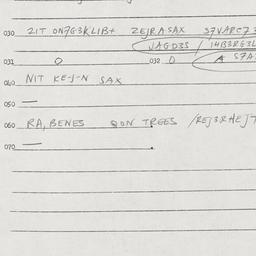 030 ZIT ON7G3KLIB+ ZEJRASAX S7VARC73
VAGD3S / 14B3RG3L
031 0 032 0 A S7A
040 NIT KE-J-N SAX
050 —
060 RA, BENES QON TREES /REJ3RHEJT
070 —